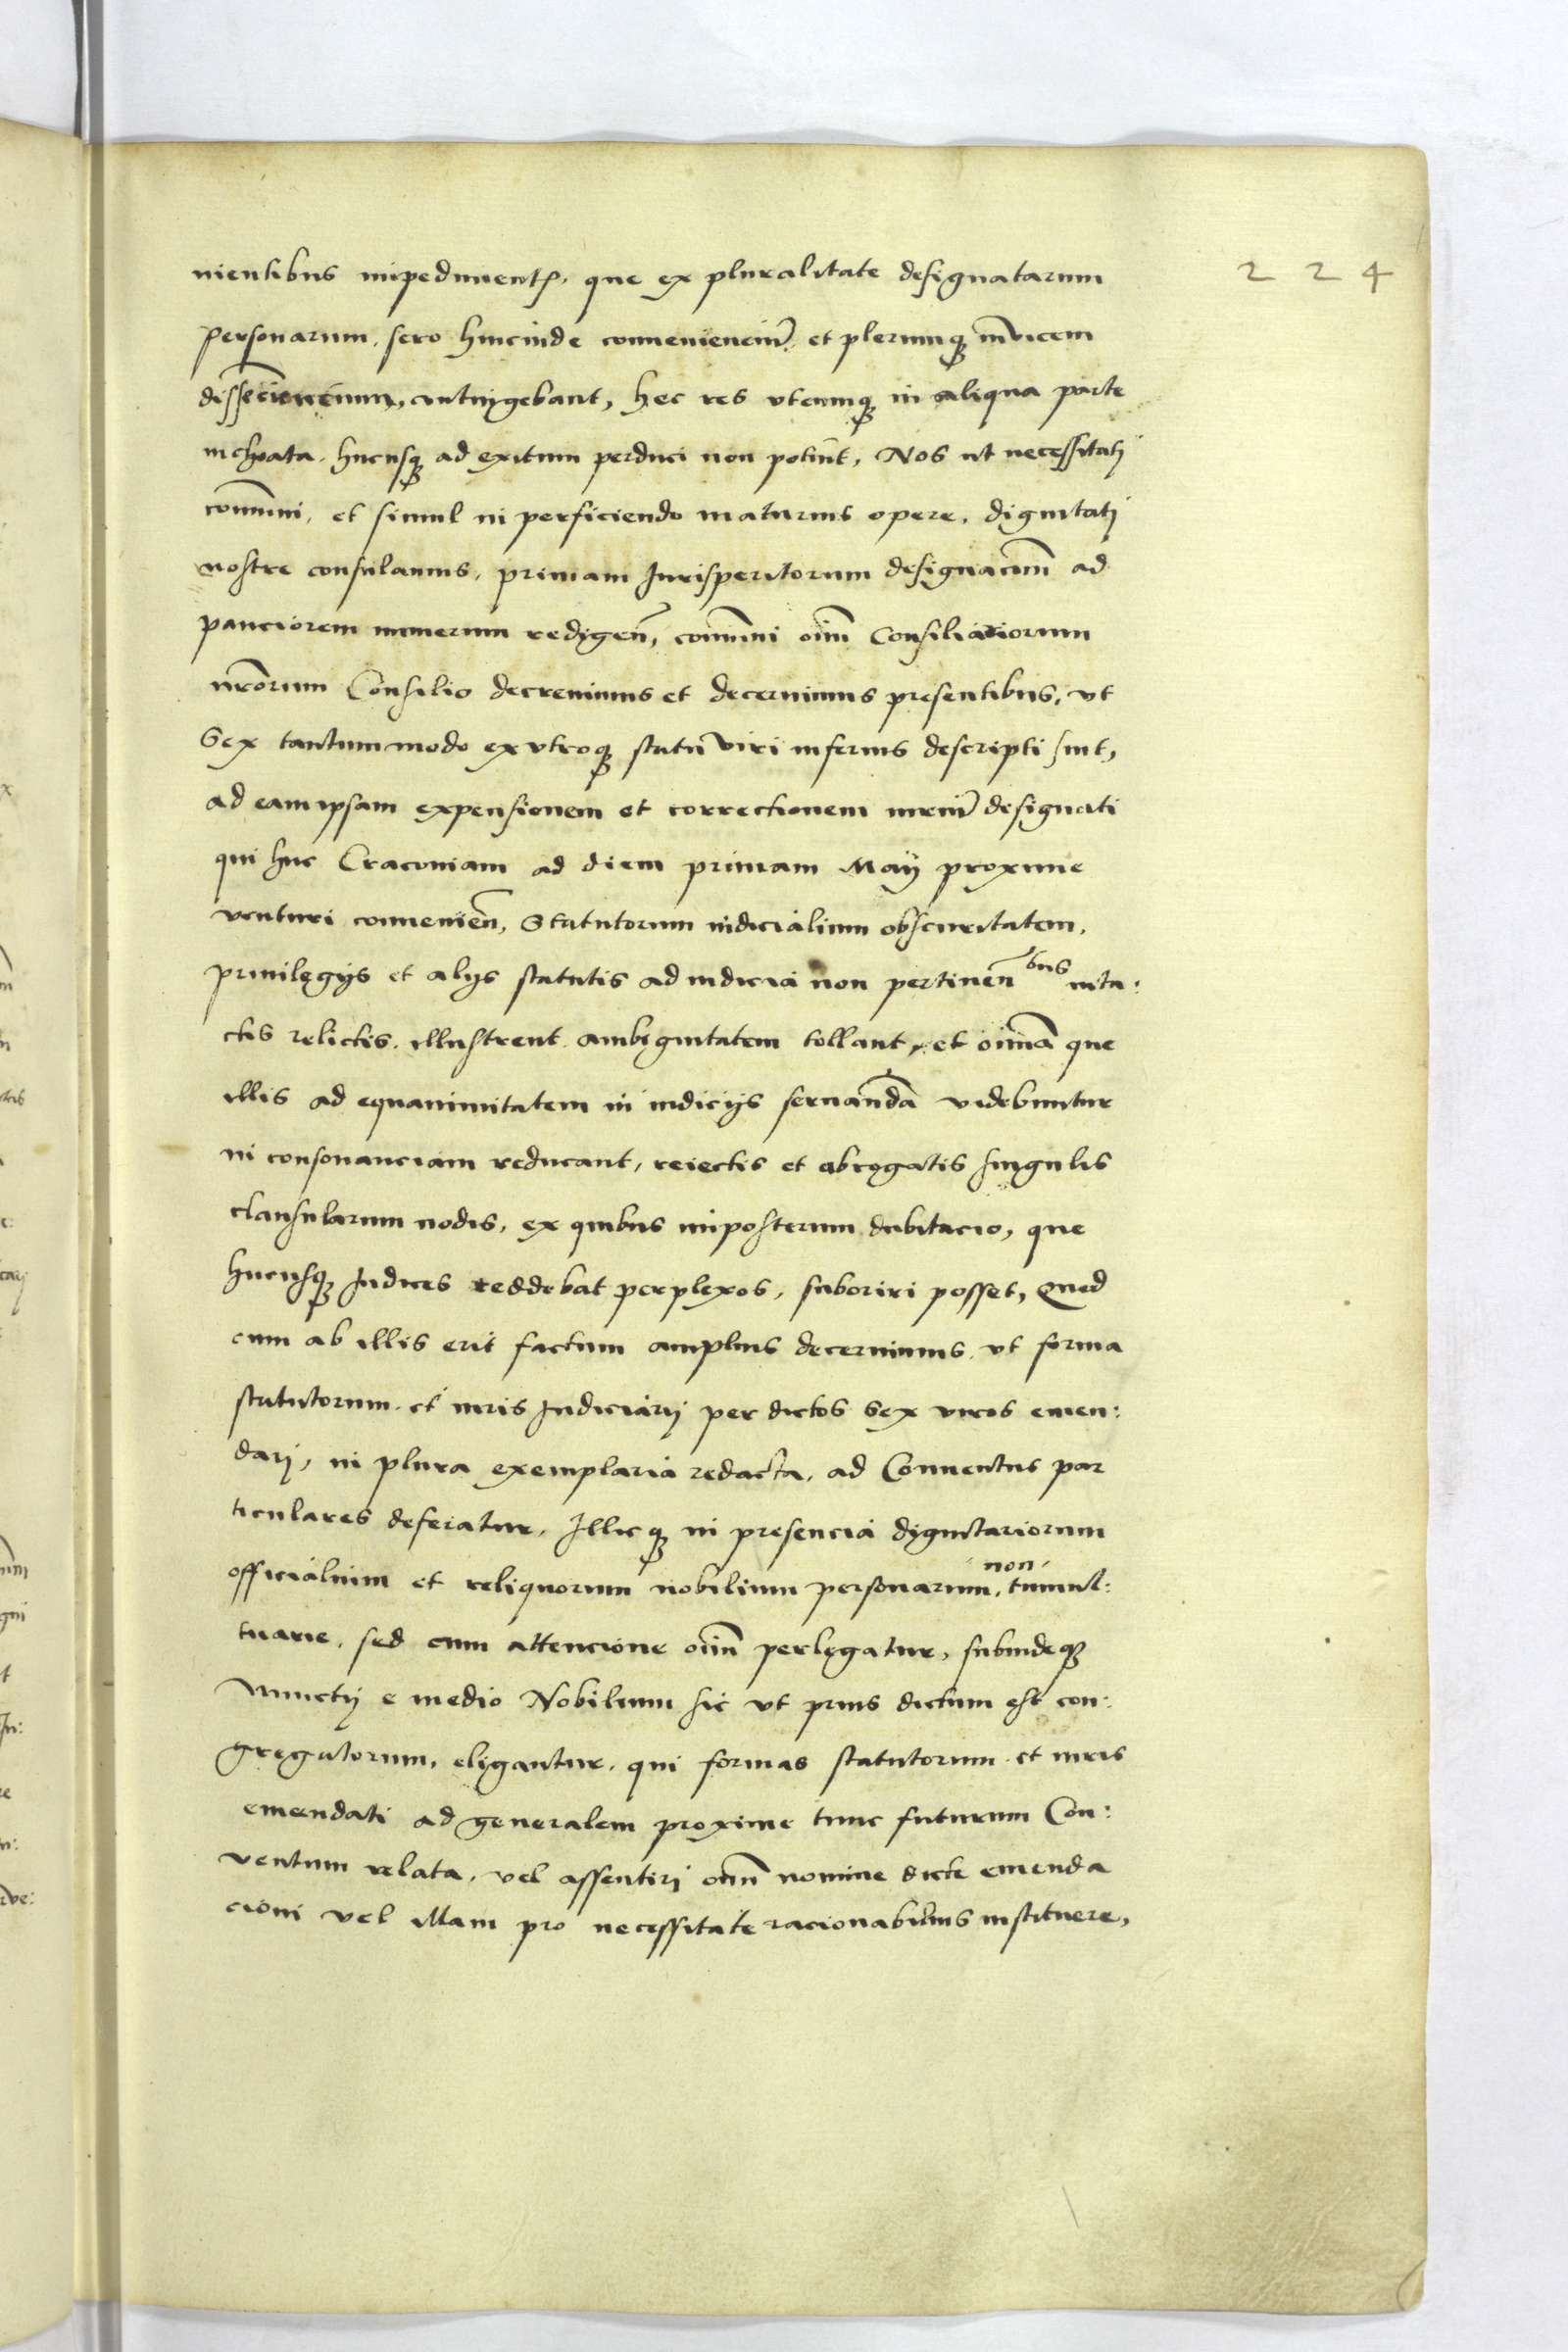 224
nientibus impediment, que ex pluralitate designatarum
personarum, sero hincinde convenienciu͂, et plerumq̃ invicem
dissēcienciuum, contingebant, hec res utcumq̃ in aliqua parte
inchoata, hucusq̃ ad exitum perduci non potuit, Nos ut necessitatj
com̄uni, et simul in perficiendo maturius opere, dignitatj
nostre consulamus, primam Jurisperitorum designac̄i͞o͞m ad
pauciorem numerum redigen̄, com̄uni o͞im Consiliariorum
n͞rorum Consilio decrevimus et decernimus presentibus, ut
Sex tantummodo ex utroq̃ statu viri inferius descripti sint,
ad eam ipsam expensionem et correctionem iurium̄ designati
qui huc Cracoviam ad diem primam Maÿ proxime
venturi convenien̄, Statutorum iudicialium obscuritatem,
privilegijs et alijs statutis ad iudicia non pertinen̄bus inta:
ctis relictis, illustrent ambiguitatem tollant, et o͞im̄a que
illis ad equanimitatem in iudicijs servan̄da videbuntur
in consonanciam reducant, reiectis et abrogatis singulis
clausularum nodis, ex quibus imposterum dubitacio, que
hucusq̃ Judices reddebat perplexos, suboriri posset, Quod
cum ab illis erit factum amplius decernimus, ut forma
statutorum et iuris Judiciarij per dictos Sex viros emen:
datj, in plura exemplaria redacta, ad Conventus par
ticulares deferatur, Illicq̃ in presencia dignitariorum
officialium et reliquorum nobilium personarum, non tumul:
tuarie, sed cum attencione o͞im perlegatur, subindeq̃
Nunctij e medio Nobilium sic ut prius dictum est con:
gregatorum, eligantur, qui formas statutorum et iuris
emendati ad generalem proxime tunc futurum Con:
ventum relata, vel assentiri o͞im nomine dicte emenda
cioni vel illam pro necessitate racionabilius instituere,